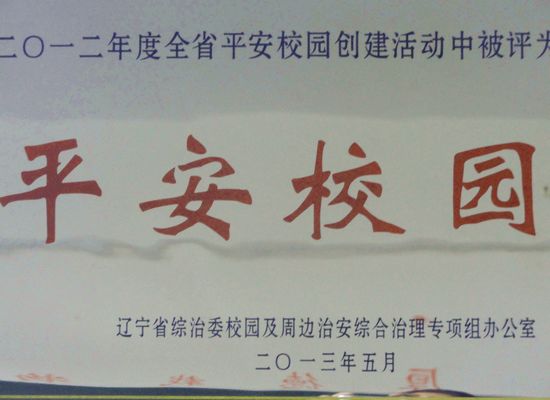 二〇一二年度全省平安校园创建活动中被评为
平安校园
辽宁省综治委校园及周边治安综合治理专项组办公室
二〇一三年五月